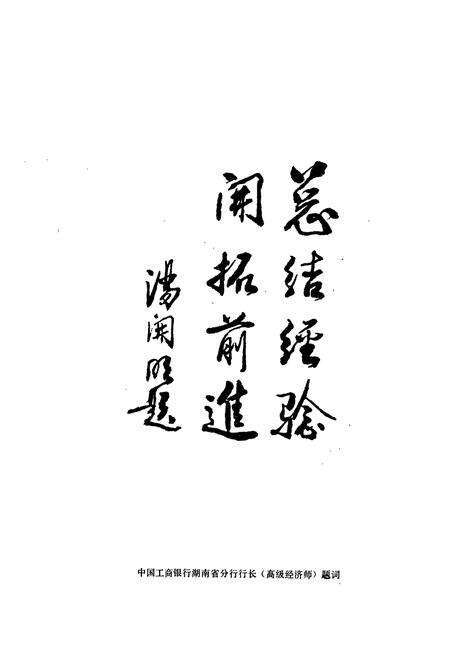 总结经验
開拓前進
湯開明题
中国工商银行湖南省分行行长（高级经济师）题词